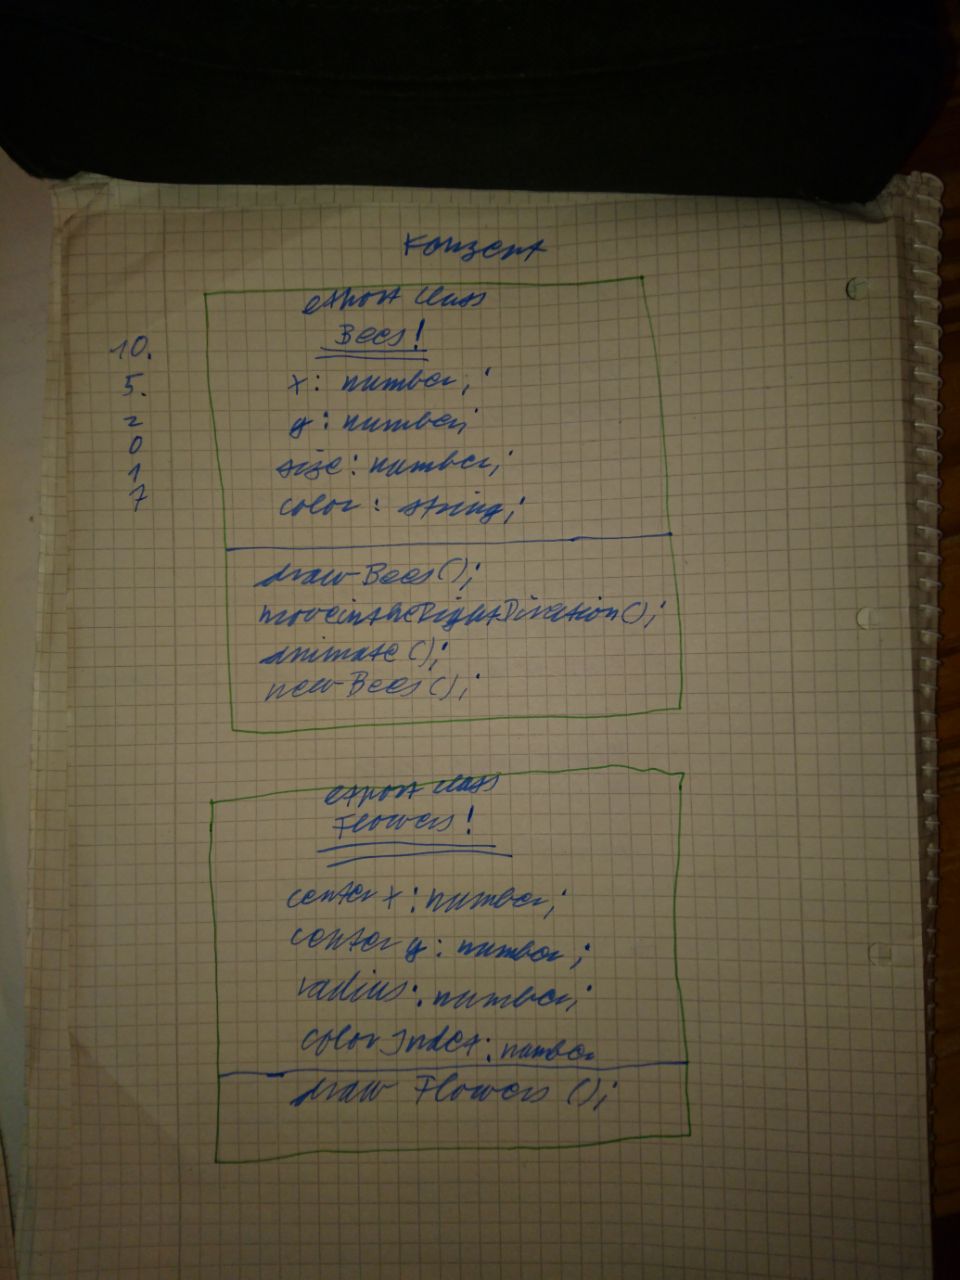 Konzept
export class
Bees!
x: number;
y: number;
size: number;
color: string;
drawBees();
moveintheRightDirection();
animate();
newBees();
10.
5.
2
0
1
7
export class
Flowers!
center x: number;
center y: number;
radius: number;
color Index: number
draw Flowers ();